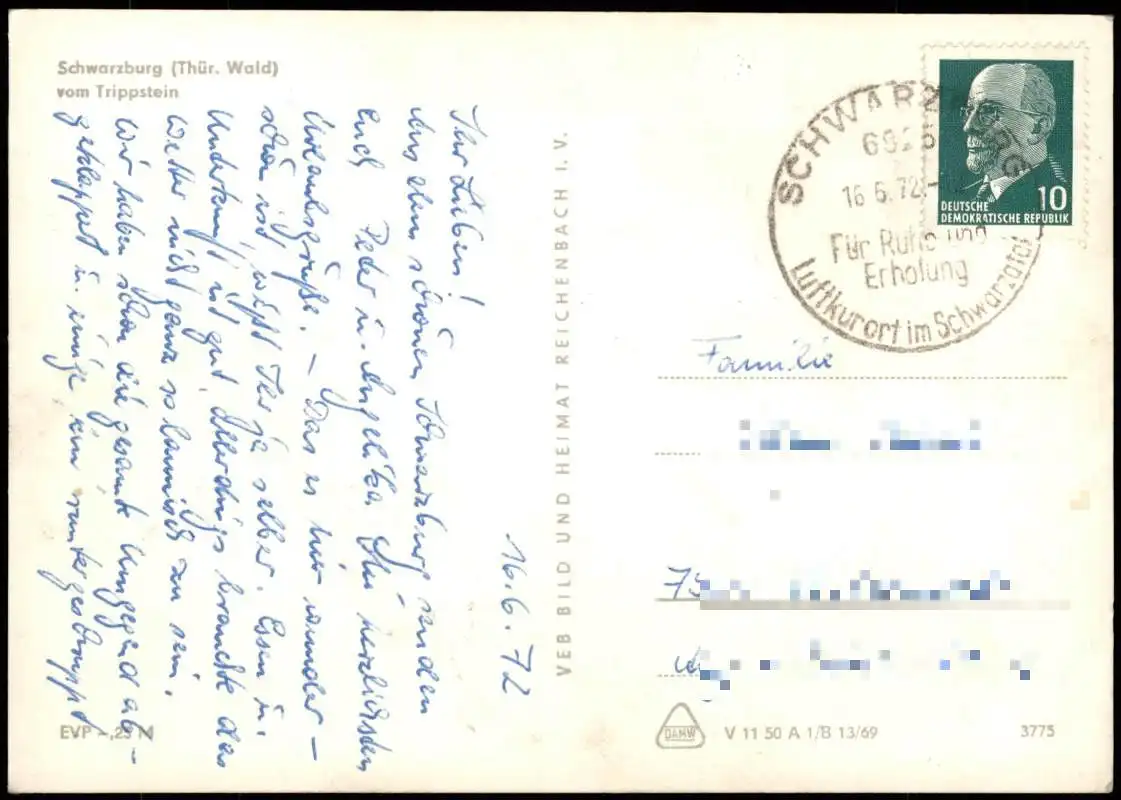 Schwarzburg (Thür. Wald)
vom Trippstein
16.6.72
Ihr Lieben!
Aus dem schönen Schwarzburg senden
Euch Peter u. Angelika die herzlichsten
Urlaubsgrüße. – Das es hier wunder-
schön ist, wißt Ihr ja selber. Essen u.
Unterkunft ist gut, allerdings brauchte das
Wetter nicht ganz so launisch zu sein.
Wir haben schon die gesamte Umgegend ab-
geklappert u. einige cm runtergeschrippt
EVP -,25 M
VEB BILD UND HEIMAT REICHENBACH I. V.
SCHWARZBURG
682
16.6.72
Für Ruhe und
Erholung
Luftkurort im Schwarzatal
10
DEUTSCHE
DEMOKRATISCHE REPUBLIK
Familie
75
DAMW
V 11 50 A 1/B 13/69
3775